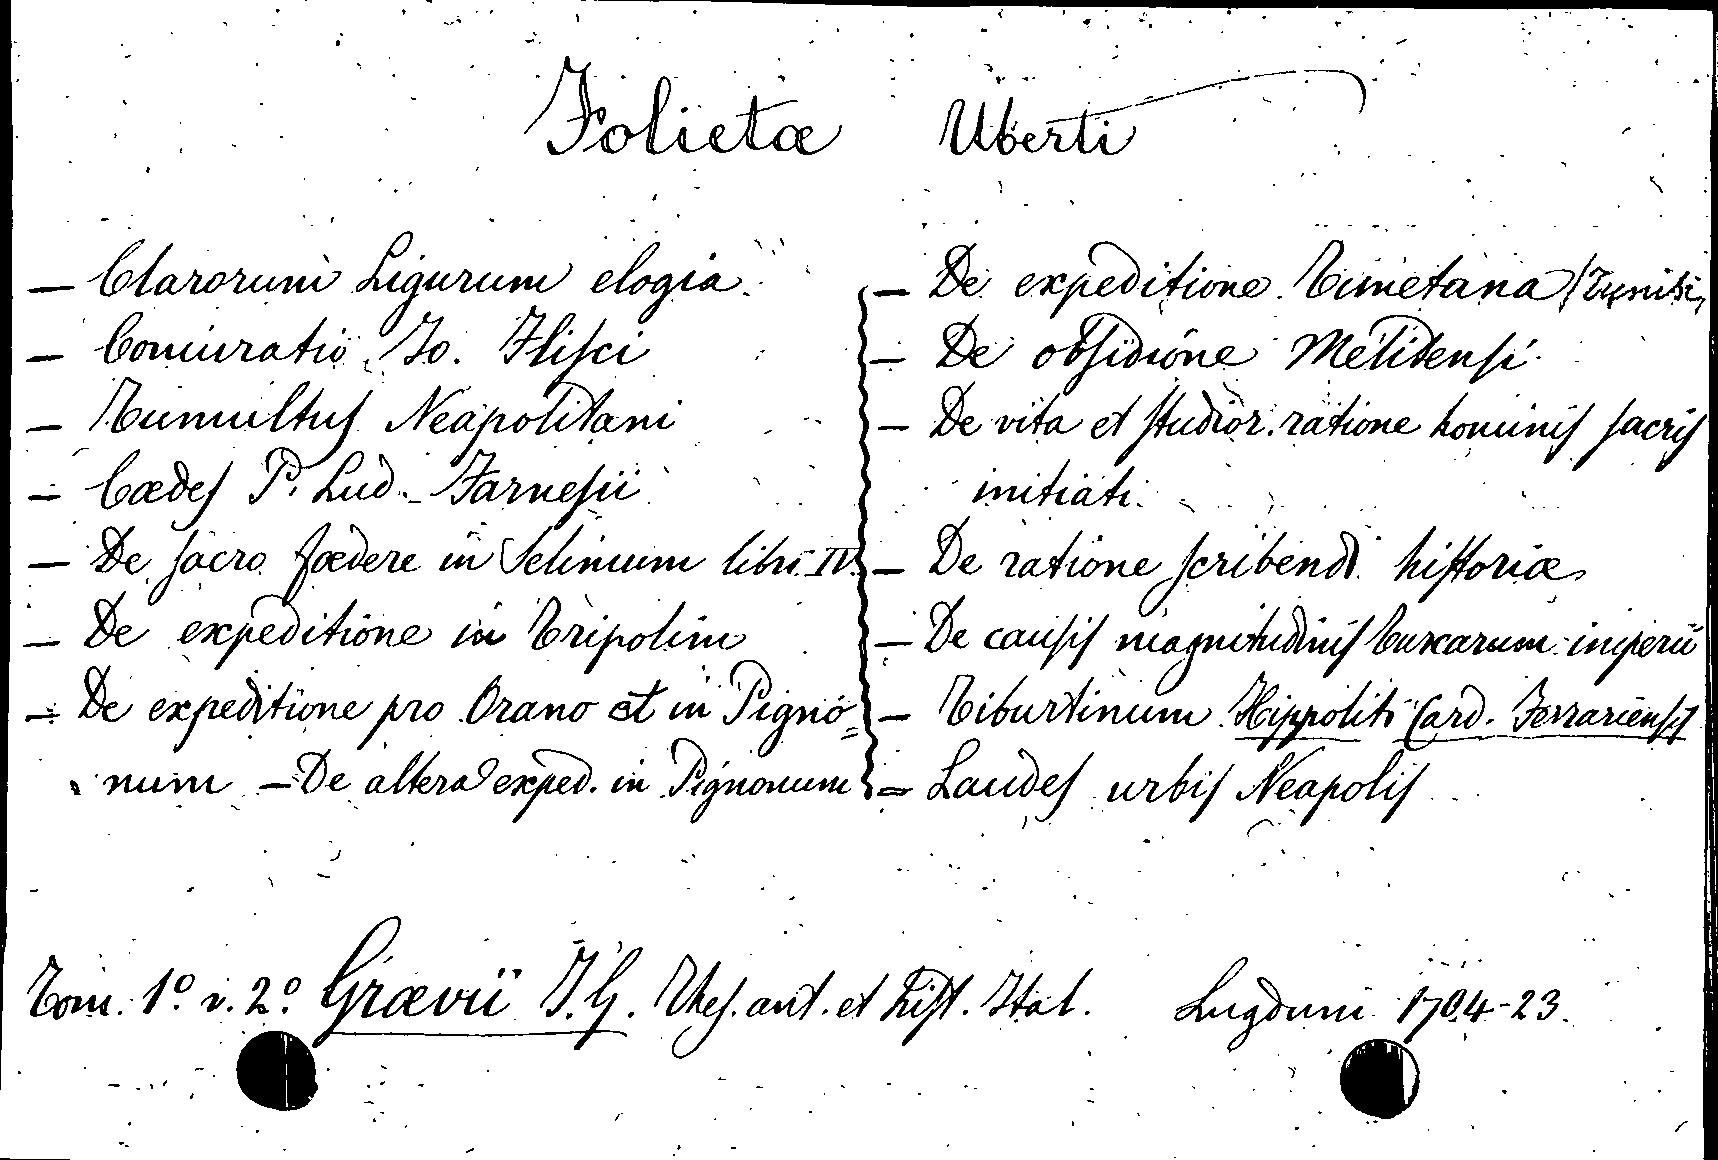 Folietæ Uberti
— Clarorum Ligurum elogia.
— Coniuratio Jo. Flisci
— Tumultus Neapolitani
— Cædes P. Lud. Farnesii
— De sacro fœdere in Selimum libri IV.
— De expeditione in Tripolim
— De expeditione pro Orano et in Pigno=
num — De altera exped. in Pignonum
— De expeditione Tunetana (Tunisi)
— De obsidione Melitensi
— De vita et studior. ratione hominis sacris
initiati.
— De ratione scribendi historiæ
— De causis magnitudinis Turcarum imperii
— Tiburtinum Hippoliti Card. Ferrariensis
— Laudes urbis Neapolis
Tom. 1º v. 2º Grævii J. G. Thes. ant. et hist. Ital. Lugduni 1704-23.